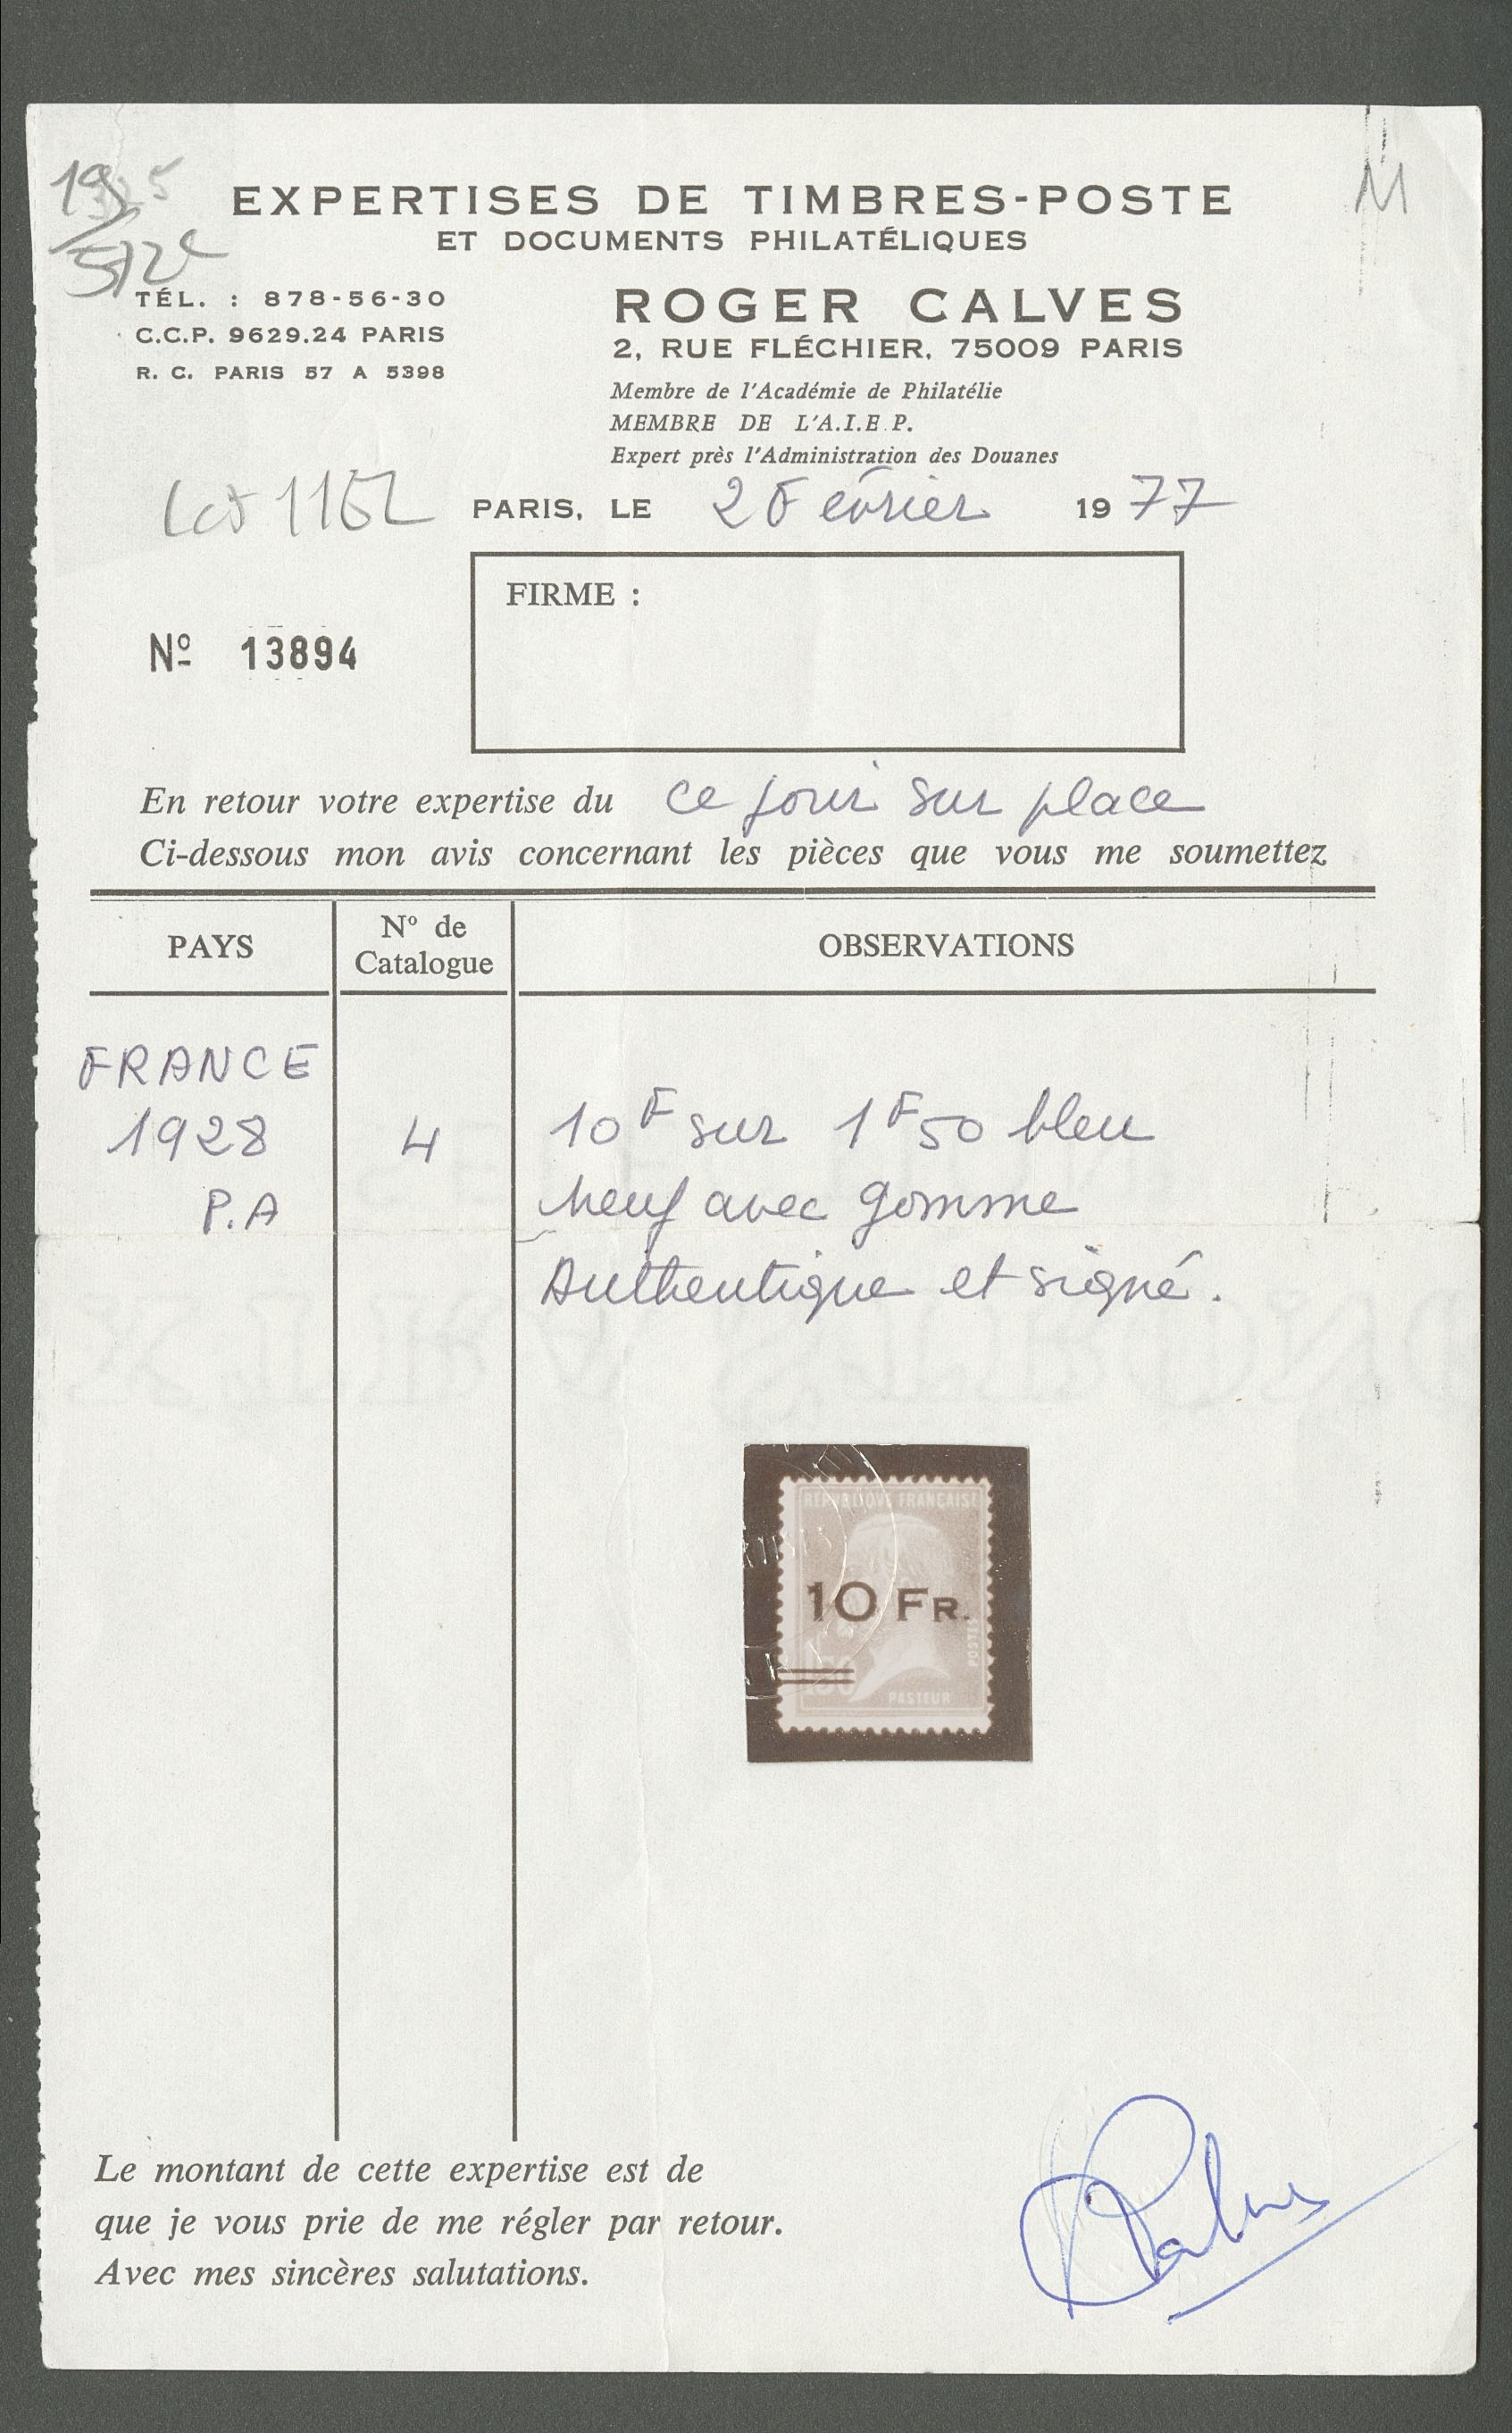 EXPERTISES DE TIMBRES-POSTE
ET DOCUMENTS PHILATÉLIQUES
TÉL. : 878-56-30
C.C.P. 9629.24 PARIS
R. C. PARIS 57 A 5398
ROGER CALVES
2, RUE FLÉCHIER, 75009 PARIS
Membre de l'Académie de Philatélie
MEMBRE DE L'A.I.E.P.
Expert près l'Administration des Douanes
PARIS, LE 2 Février 1977
FIRME :
Nº 13894
En retour votre expertise du ce jour sur place
Ci-dessous mon avis concernant les pièces que vous me soumettez
PAYS
Nº de
Catalogue
OBSERVATIONS
FRANCE
1928 4 10F sur 1F50 bleu
P.A neuf avec gomme
Authentique et signé.
REPUBLIQUE FRANÇAISE
10 FR.
POSTES
PASTEUR
Le montant de cette expertise est de
que je vous prie de me régler par retour.
Avec mes sincères salutations.
Calves